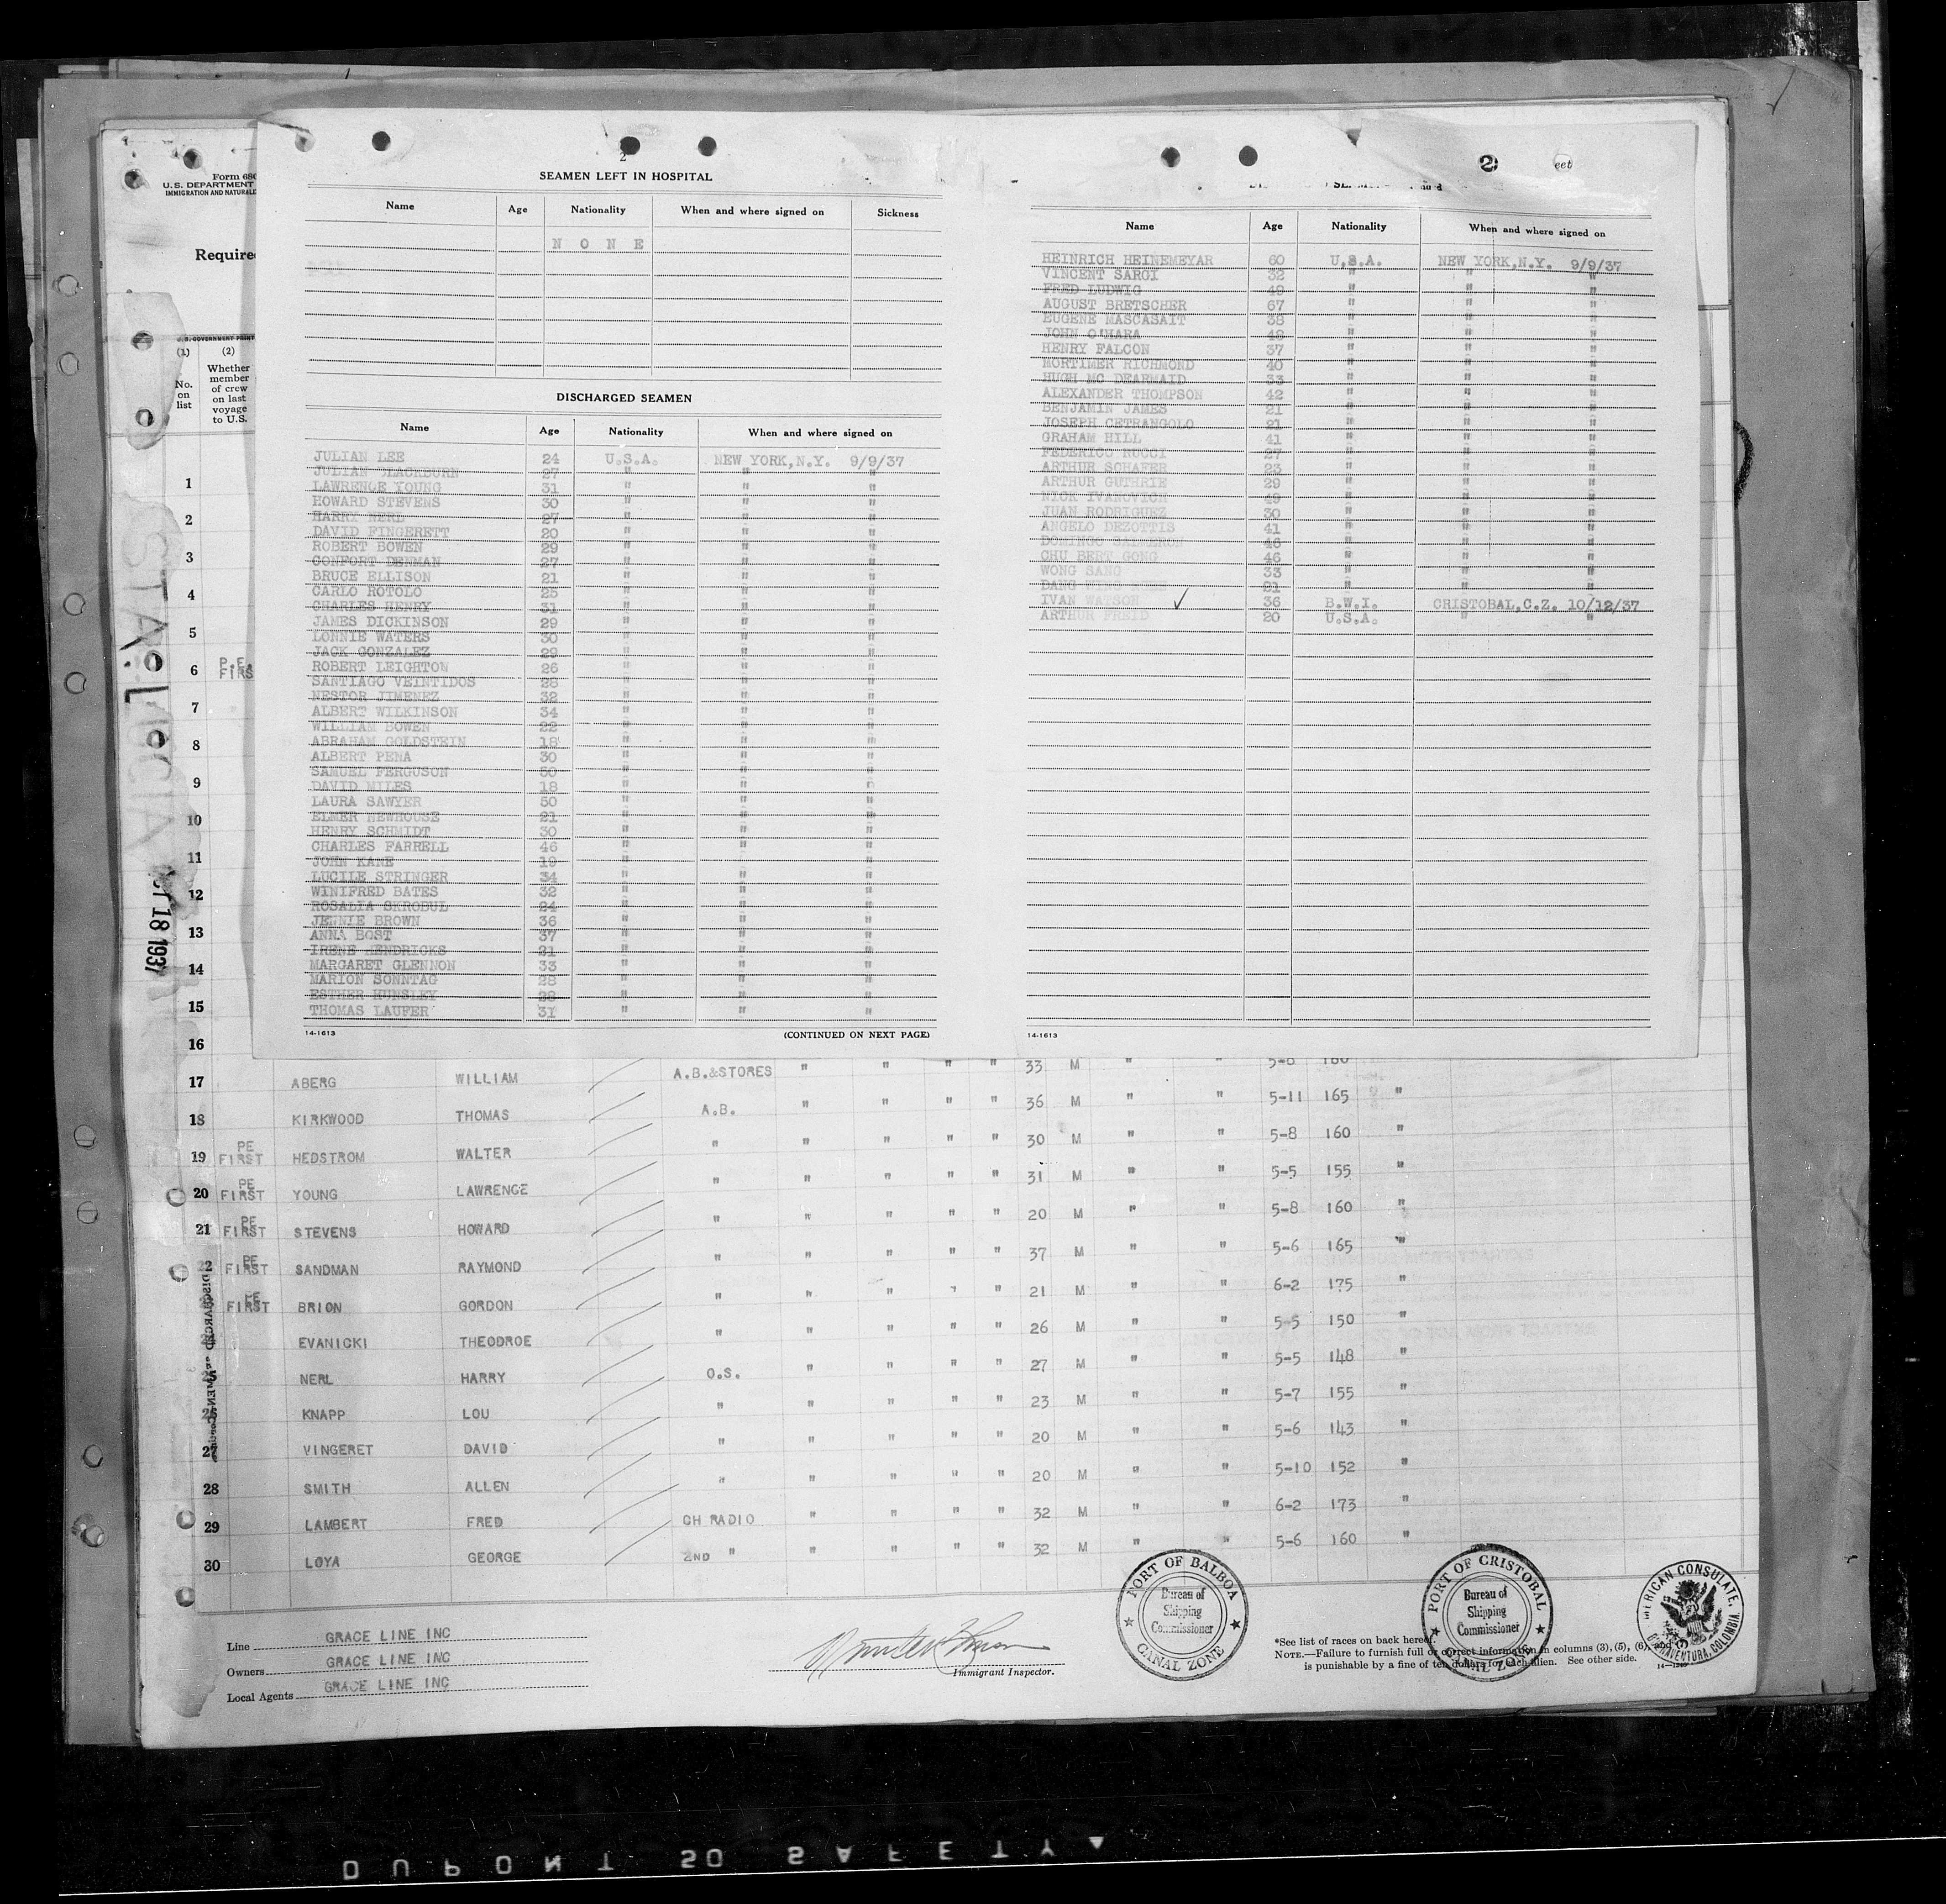 2
SEAMEN LEFT IN HOSPITAL
Name Age Nationality When and where signed on Sickness
N O N E
DISCHARGED SEAMEN
Name Age Nationality When and where signed on
JULIAN LEE 24 U.S.A. NEW YORK,N.Y. 9/9/37
JULIAN BLACKBURN 27 " " "
LAWRENCE YOUNG 31 " " "
HOWARD STEVENS 30 " " "
HARRY NERL 27 " " "
DAVID FINGERETT 20 " " "
ROBERT BOWEN 29 " " "
CONFORT DENMAN 27 " " "
BRUCE ELLISON 21 " " "
CARLO ROTOLO 25 " " "
CHARLES HENRY 31 " " "
JAMES DICKINSON 29 " " "
LONNIE WATERS 30 " " "
JACK GONZALEZ 29 " " "
ROBERT LEIGHTON 26 " " "
SANTIAGO VEINTIDOS 28 " " "
NESTOR JIMENEZ 32 " " "
ALBERT WILKINSON 34 " " "
WILLIAM BOWEN 22 " " "
ABRAHAM GOLDSTEIN 18 " " "
ALBERT PENA 30 " " "
SAMUEL FERGUSON 50 " " "
DAVID MILES 18 " " "
LAURA SAWYER 50 " " "
ELMER NEWHOUSE 21 " " "
HENRY SCHMIDT 30 " " "
CHARLES FARRELL 46 " " "
JOHN KANE 19 " " "
LUCILE STRINGER 34 " " "
WINIFRED BATES 32 " " "
ROSALIA SKROBUL 24 " " "
JENNIE BROWN 36 " " "
ANNA BOST 37 " " "
IRENE HENDRICKS 21 " " "
MARGARET GLENNON 33 " " "
MARION SONNTAG 28 " " "
ESTHER HUNSLEY 28 " " "
THOMAS LAUFER 31 " " "
14-1613 (CONTINUED ON NEXT PAGE)
2 eet
Name Age Nationality When and where signed on
HEINRICH HEINEMEYAR 60 U.S.A. NEW YORK,N.Y. 9/9/37
VINCENT SARGI 32 " " "
FRED LUDWIG 49 " " "
AUGUST BRETSCHER 67 " " "
EUGENE MASCASAIT 38 " " "
JOHN O'HARA 48 " " "
HENRY FALCON 37 " " "
MORTIMER RICHMOND 40 " " "
HUGH MC DEARMAID 33 " " "
ALEXANDER THOMPSON 42 " " "
BENJAMIN JAMES 21 " " "
JOSEPH CETRANGOLO 21 " " "
GRAHAM HILL 41 " " "
FEDERICO RUCCI 27 " " "
ARTHUR SCHAFER 23 " " "
ARTHUR GUTHRIE 29 " " "
NICK IVANOVICH 49 " " "
JUAN RODRIGUEZ 30 " " "
ANGELO DEZOTTIS 41 " " "
DOMINGO 46 " " "
CHU BERT GONG 46 " " "
WONG SANG 33 " " "
DANG 21 " " "
IVAN WATSON 36 B.W.I. CRISTOBAL,C.Z. 10/12/37
ARTHUR FREID 20 U.S.A. " "
14-1613
Form 680
U.S. DEPARTMENT
IMMIGRATION AND NATURALIZ
Require
U.S. GOVERNMENT PRINT
(1) (2)
No. on list
Whether member of crew on last voyage to U.S.
STA. LUCIA
18 1937
1
2
3
4
5
6 P.E. FIRS
7
8
9
10
11
12
13
14
15
16
33 M " " 5-8 180
17 ABERG WILLIAM A.B.&STORES " " " "
18 KIRKWOOD THOMAS A.B. " " " " 36 M " " 5-11 165 "
19 PE FIRST HEDSTROM WALTER " " " " " 30 M " " 5-8 160 "
20 PE FIRST YOUNG LAWRENCE " " " " " 31 M " " 5-5 155 "
21 PE FIRST STEVENS HOWARD " " " " " 20 M " " 5-8 160 "
22 PE FIRST SANDMAN RAYMOND " " " " " 37 M " " 5-6 165 "
PE FIRST BRION GORDON " " " " " 21 M " " 6-2 175 "
EVANICKI THEODROE " " " " " 26 M " " 5-5 150 "
NERL HARRY O.S. " " " " 27 M " " 5-5 148 "
KNAPP LOU " " " " " 23 M " " 5-7 155 "
27 VINGERET DAVID " " " " " 20 M " " 5-6 143 "
28 SMITH ALLEN " " " " " 20 M " " 5-10 152 "
29 LAMBERT FRED CH RADIO " " " " 32 M " " 6-2 173 "
30 LOYA GEORGE 2ND " " " " " 32 M " " 5-6 160 "
Line GRACE LINE INC
Owners GRACE LINE INC
Local Agents GRACE LINE INC
Immigrant Inspector.
PORT OF BALBOA
Bureau of Shipping Commissioner
CANAL ZONE
PORT OF CRISTOBAL
Bureau of Shipping Commissioner
CANAL ZONE
AMERICAN CONSULATE,
BUENAVENTURA, COLOMBIA.
*See list of races on back hereof.
NOTE.—Failure to furnish full or correct information in columns (3), (5), (6), and (7)
is punishable by a fine of ten dollars for each alien. See other side.
DUPONT 50 SAFETY